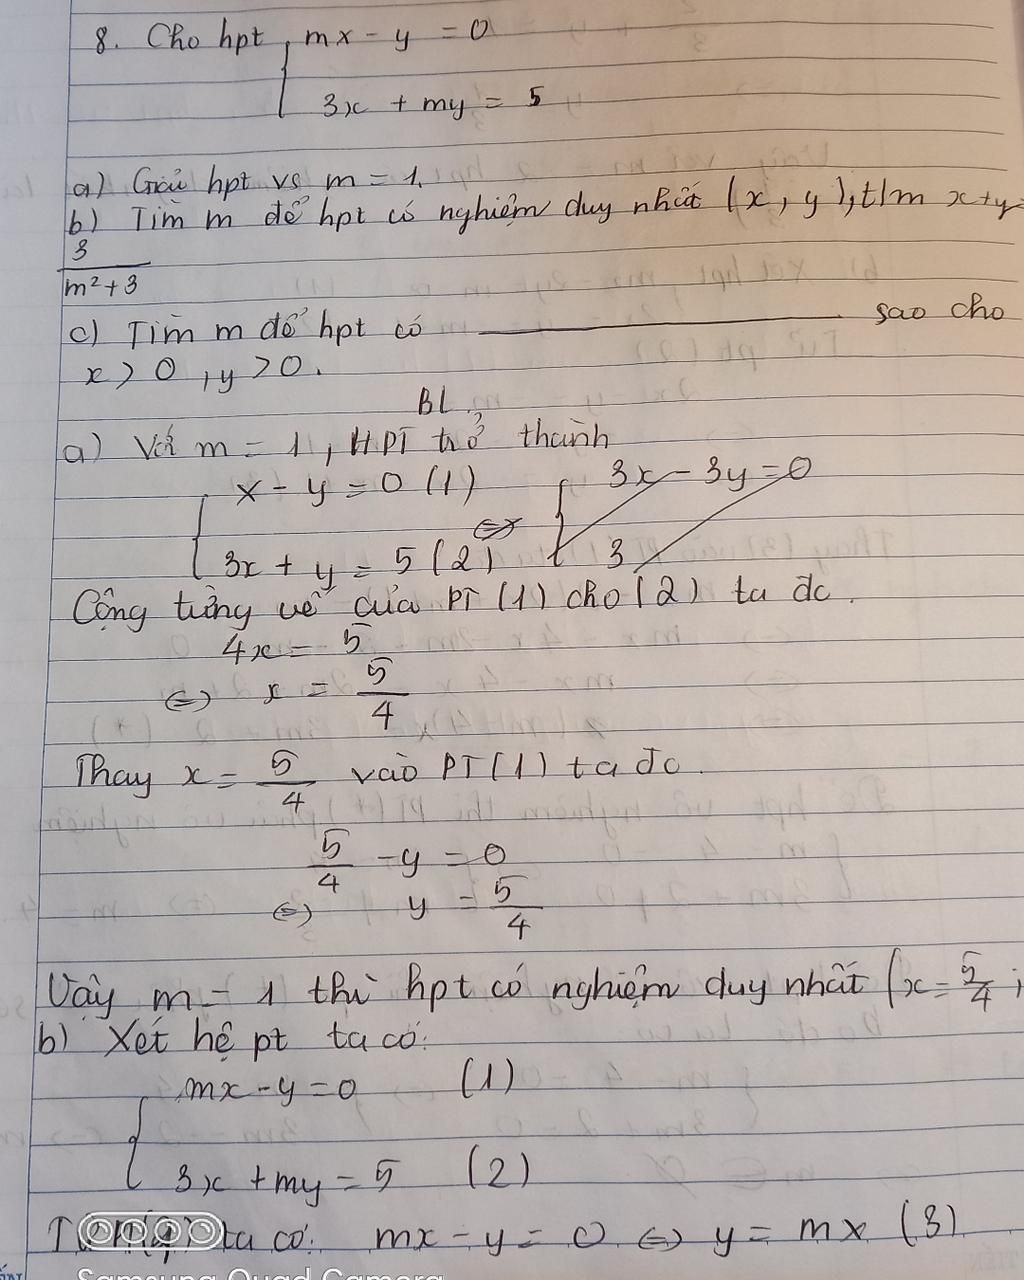 8. Cho hpt { mx - y = 0
3x + my = 5
a) Giải hpt vs m = 1.
b) Tìm m để hpt có nghiệm duy nhất (x, y), t/m x+y=
3
m² + 3
c) Tìm m để hpt có ———— sao cho
x > 0, y > 0.
BL
a) Với m = 1, HPT trở thành
{ x - y = 0 (1) ⇔ { 3x - 3y = 0
3x + y = 5 (2) 3
Cộng từng vế của PT (1) cho (2) ta đc.
4x = 5
⇔ x = 5/4
Thay x = 5/4 vào PT (1) ta đc.
5/4 - y = 0
⇔ y = 5/4
Vậy m = 1 thì hpt có nghiệm duy nhất (x = 5/4;
b) Xét hệ pt ta có:
{ mx - y = 0 (1)
3x + my = 5 (2)
ta có: mx - y = 0 ⇔ y = mx (3)
Samsung Quad Camera